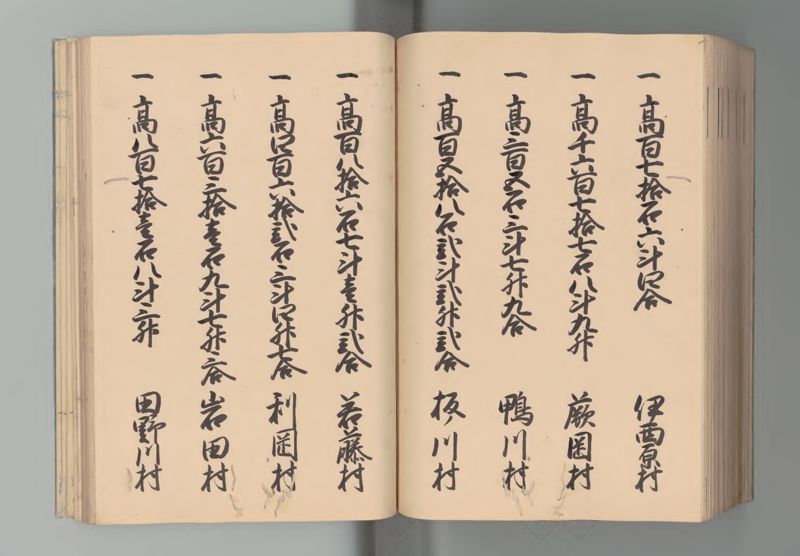 一 高百七拾石六斗四合 伊西原村
一 高千六百七拾七石八斗九升 蕨岡村
一 高三百五石三斗七升九合 鴨川村
一 高百五拾八石弐斗弐升弐合 板ノ川村
一 高百八拾六石七斗壱升弐合 若藤村
一 高四百六拾弐石三斗四升七合 利岡村
一 高六百三拾壱石九斗七升三合 岩田村
一 高八百七拾壱石八斗三升 田野川村